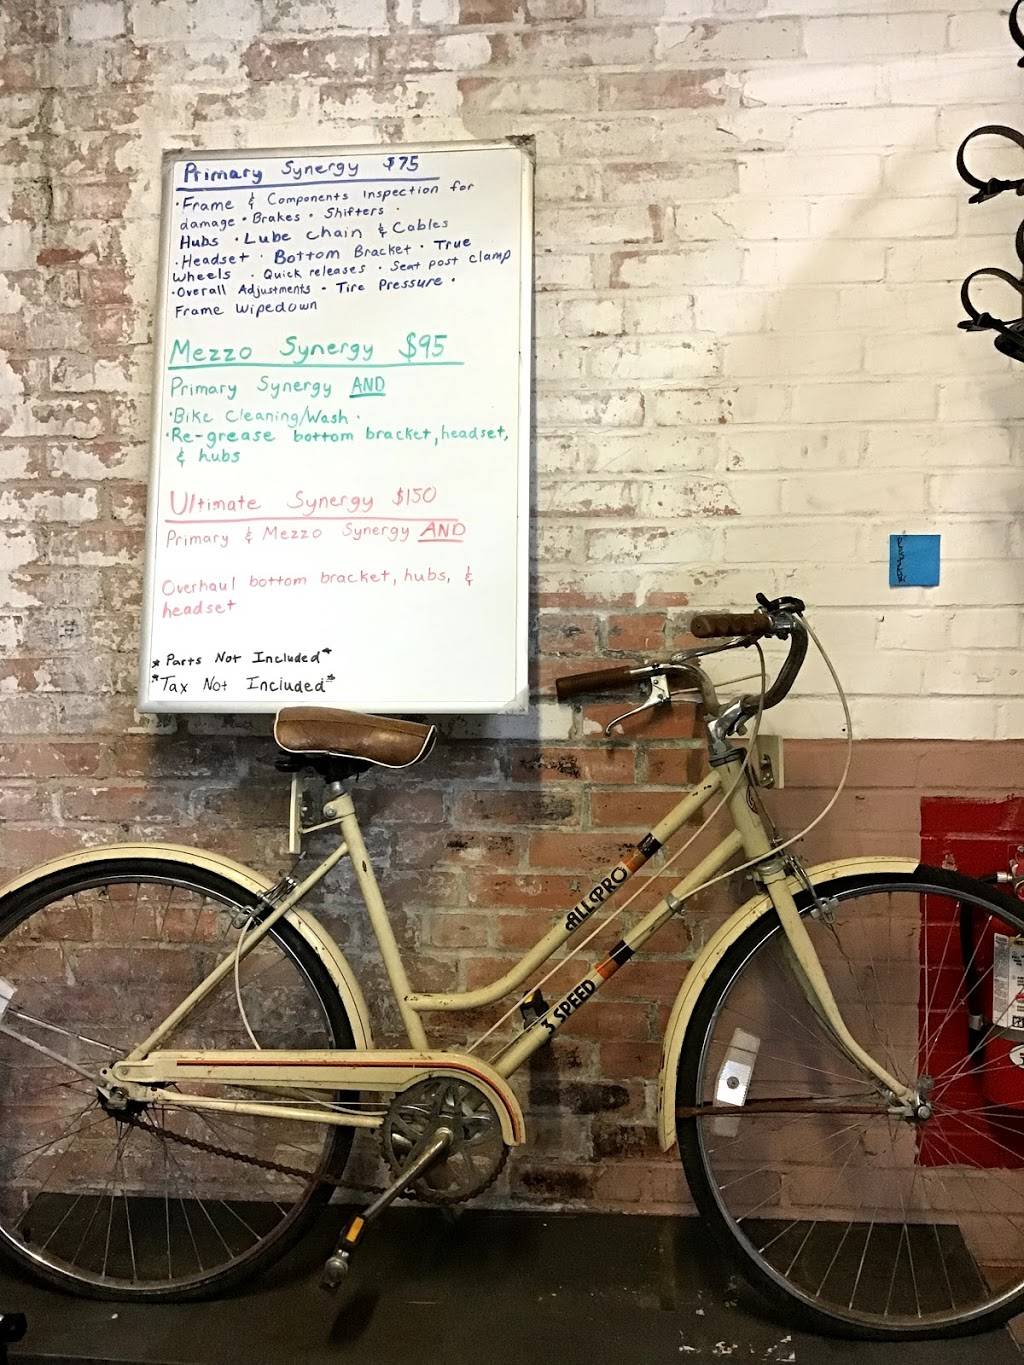 Primary Synergy $75
• Frame & Components Inspection for
damage • Brakes • Shifters •
Hubs • Lube Chain & Cables
• Headset • Bottom Bracket • True
Wheels • Quick releases • Seat post clamp
• Overall Adjustments • Tire Pressure •
Frame Wipedown
Mezzo Synergy $95
Primary Synergy AND
• Bike Cleaning/Wash •
• Re-grease bottom bracket, headset,
& hubs
Ultimate Synergy $150
Primary & Mezzo Synergy AND
Overhaul bottom bracket, hubs, &
headset
* Parts Not Included *
* Tax Not Included *
ALLPRO
3 SPEED